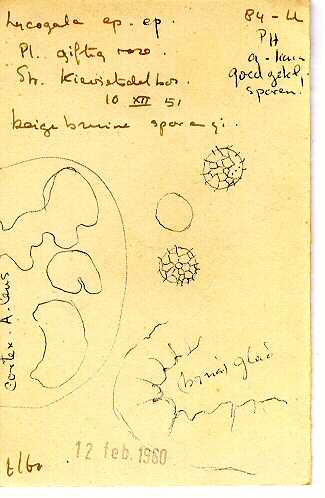 Lycogala ep. ep.
Pl. giftig roze.
Str. Kievietsdel bos.
10 XII 51
beige bruine sporangi.
84-U
PH
goed gekl.
sporen!
Cortex. A. lens
(bruin) glad
12 feb. 1960